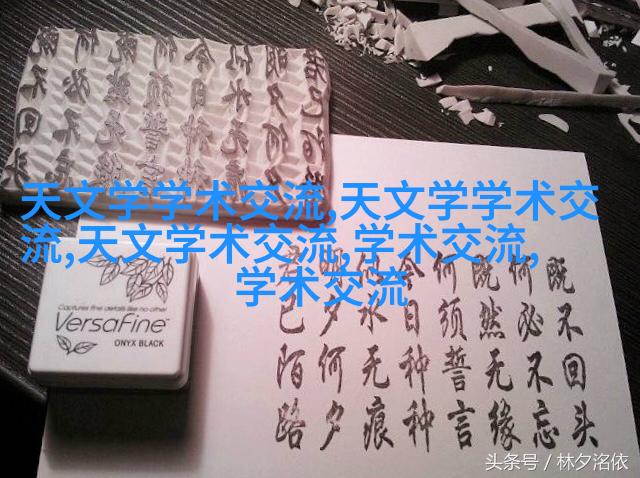 天文学学术交流,天文学学术交
流,天文学术交流,学术交流,
学术交流
Captures fine details like no other
VersaFine
ONYX BLACK
既不回头
何必不忘
既然无缘
何须誓言
今日种种
似水无痕
明夕何夕
君已陌路
头条号 / 林夕洺依